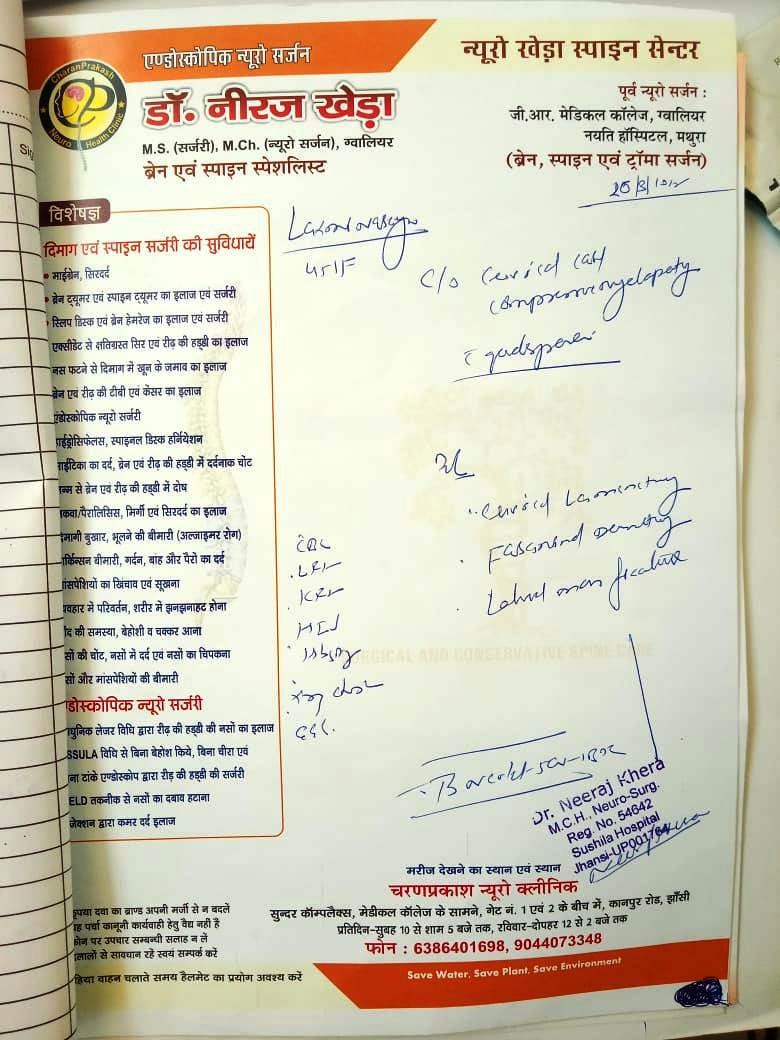 एण्डोस्कोपिक न्यूरो सर्जन
न्यूरो खेड़ा स्पाइन सेन्टर
CharanPrakash
Neuro Health Clinic
डॉ. नीरज खेड़ा
M.S. (सर्जरी), M.Ch. (न्यूरो सर्जन), ग्वालियर
ब्रेन एवं स्पाइन स्पेशलिस्ट
पूर्व न्यूरो सर्जन :
जी.आर. मेडिकल कॉलेज, ग्वालियर
नयति हॉस्पिटल, मथुरा
(ब्रेन, स्पाइन एवं ट्रॉमा सर्जन)
Sig
विशेषज्ञ
दिमाग एवं स्पाइन सर्जरी की सुविधायें
माईग्रेन, सिरदर्द
ब्रेन ट्यूमर एवं स्पाइन ट्यूमर का इलाज एवं सर्जरी
स्लिप डिस्क एवं ब्रेन हेमरेज का इलाज एवं सर्जरी
एक्सीडेंट से क्षतिग्रस्त सिर एवं रीढ़ की हड्डी का इलाज
नस फटने से दिमाग में खून के जमाव का इलाज
ब्रेन एवं रीढ़ की टीबी एवं कैंसर का इलाज
एंडोस्कोपिक न्यूरो सर्जरी
हाईड्रोसिफेलस, स्पाइनल डिस्क हर्नियेशन
साईटिका का दर्द, ब्रेन एवं रीढ़ की हड्डी में दर्दनाक चोंट
से ब्रेन एवं रीढ़ की हड्डी में दोष
कवा/पैरालिसिस, मिर्गी एवं सिरदर्द का इलाज
मागी बुखार, भूलने की बीमारी (अल्जाइमर रोग)
र्किन्सन बीमारी, गर्दन, बांह और पैरों का दर्द
मांसपेशियों का खिंचाव एवं सूखना
यवहार में परिवर्तन, शरीर में झनझनाहट होना
द की समस्या, बेहोशी व चक्कर आना
सों की चोंट, नसों में दर्द एवं नसों का चिपकना
सों और मांसपेशियों की बीमारी
डोस्कोपिक न्यूरो सर्जरी
धुनिक लेजर विधि द्वारा रीढ़ की हड्डी की नसों का इलाज
SSULA विधि से बिना बेहोश किये, बिना चीरा एवं
ना टांके एण्डोस्कोप द्वारा रीड़ की हड्डी की सर्जरी
ELD तकनीक से नसों का दबाव हटाना
जेक्शन द्वारा कमर दर्द इलाज
45/F
C/o Cervical
CBC
LFT
KFT
SURGICAL AND CONSERVATIVE SPINE CARE
Dr. Neeraj Khera
M.C.H., Neuro-Surg.
Reg. No. 54642
Sushila Hospital
मरीज देखने का स्थान एवं स्थान
चरणप्रकाश न्यूरो क्लीनिक
सुन्दर कॉम्पलैक्स, मेडीकल कॉलेज के सामने, गेट नं. 1 एवं 2 के बीच में, कानपुर रोड, झाँसी
प्रतिदिन-सुबह 10 से शाम 5 बजे तक, रविवार-दोपहर 12 से 2 बजे तक
फोन : 6386401698, 9044073348
कृपया दवा का ब्राण्ड अपनी मर्जी से न बदलें
ह पर्चा कानूनी कार्यवाही हेतु वैद्य नहीं है
फोन पर उपचार सम्बन्धी सलाह न लें
लालो से सावधान रहे स्वयं सम्पर्क करें
हिया वाहन चलाते समय हैलमेट का प्रयोग अवश्य करें
Save Water, Save Plant, Save Environment